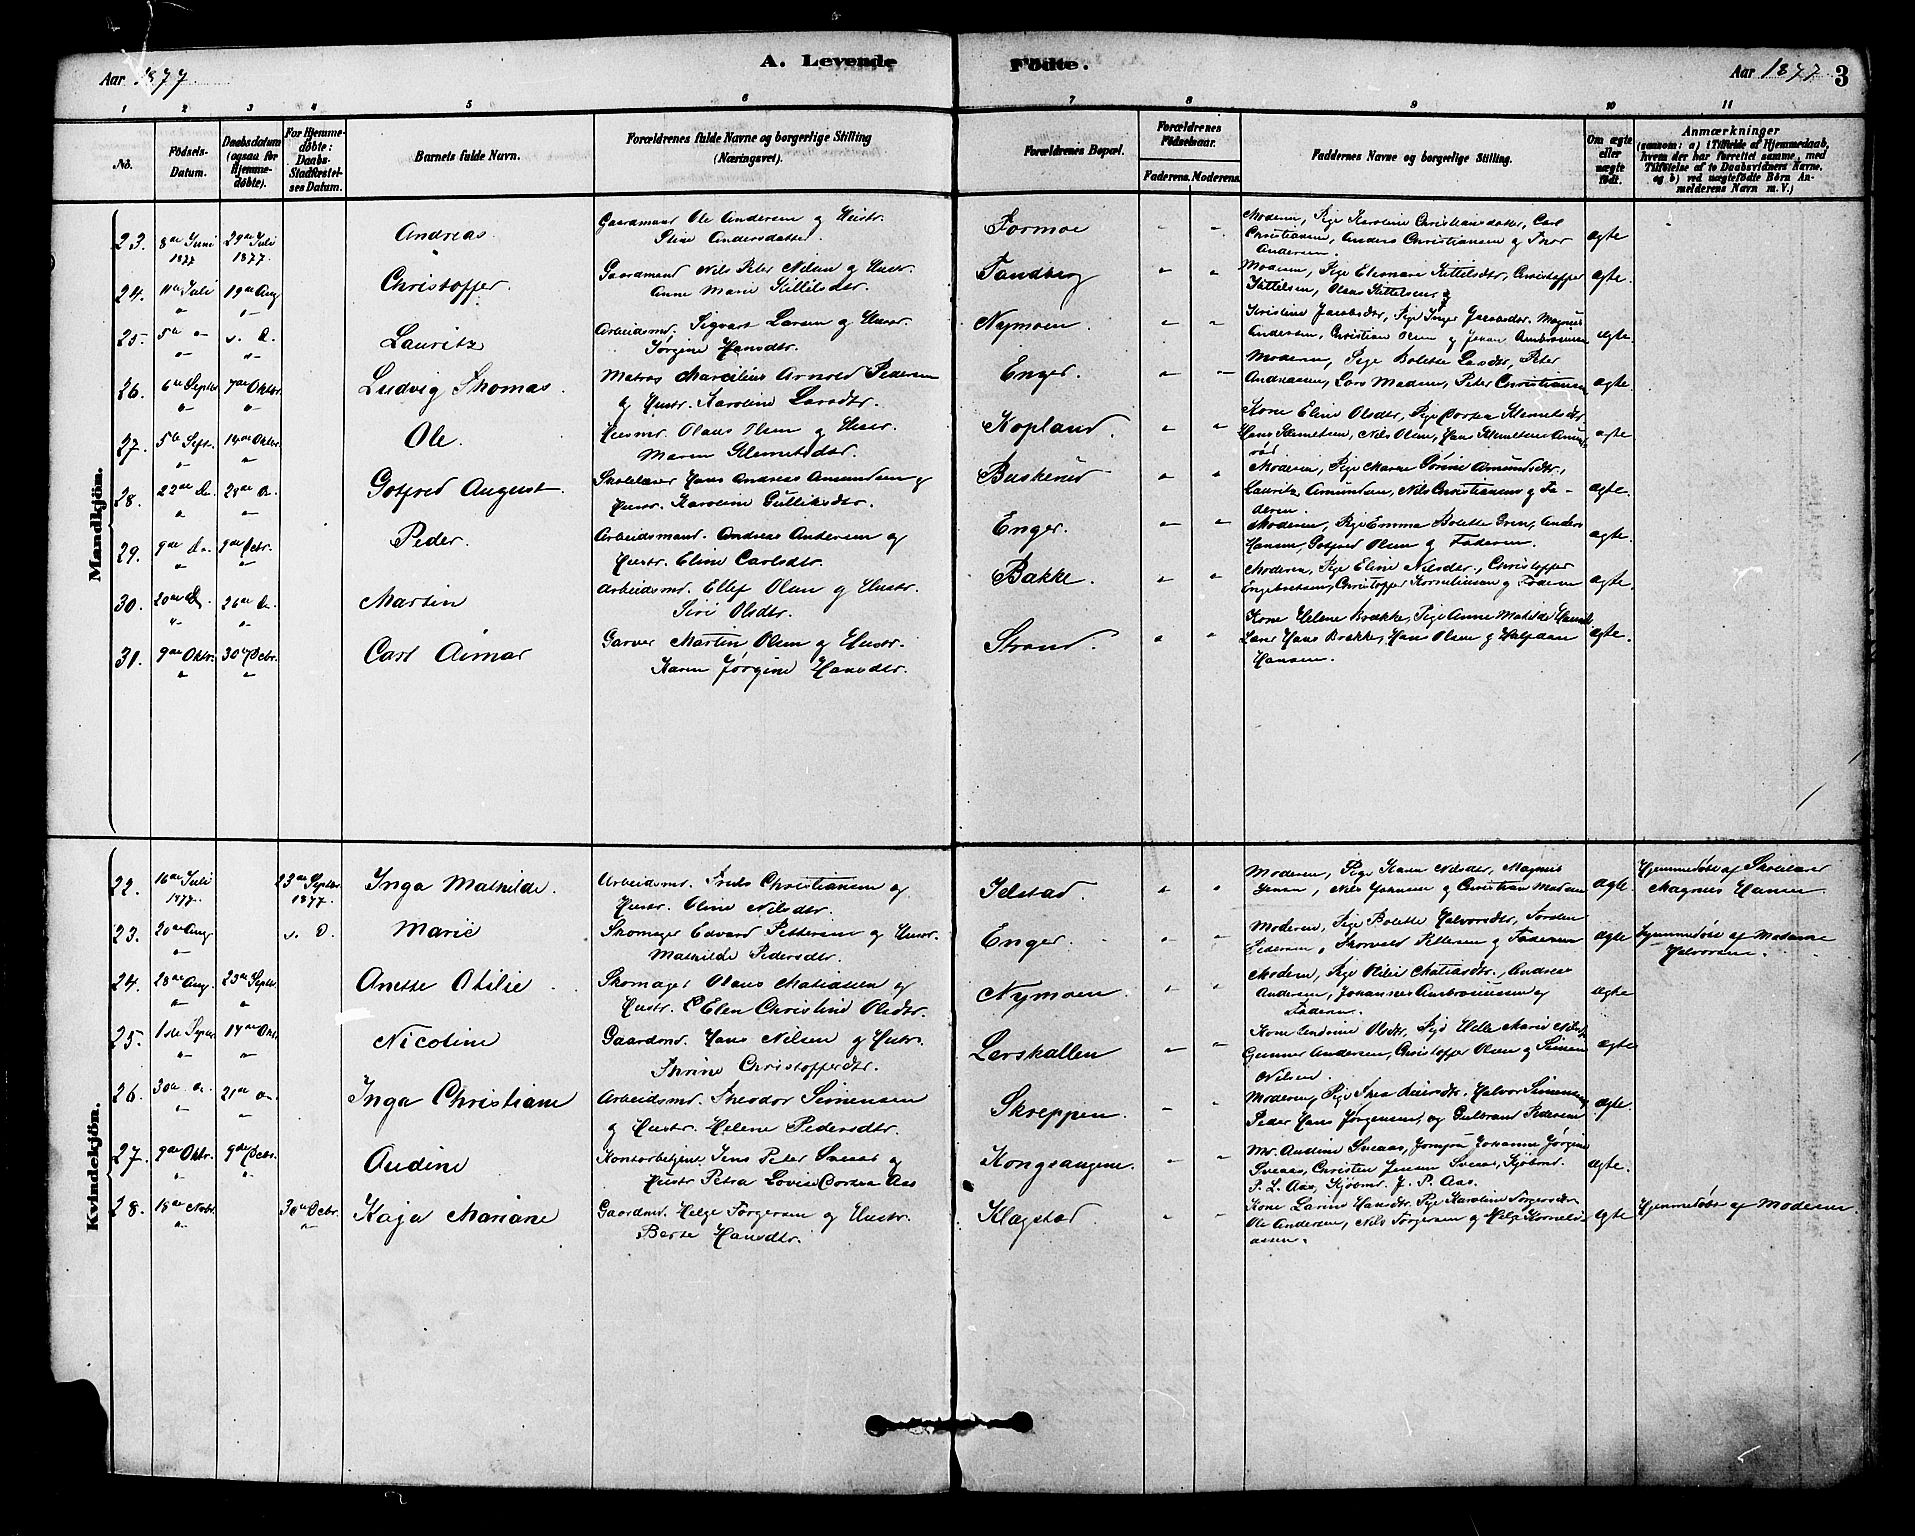 Aar 1877.
A. Levende Fødte.
Aar 1877
3
1 2 3 4 5 6 7 8 9 10 11
No.
Fødsels-Datum.
Daabsdatum (ogsaa for Hjemmedøbte).
For Hjemmedøbte: Daabs-Stadfæstelses Datum.
Barnets fulde Navn.
Forældrenes fulde Navne og borgerlige Stilling (Næringsvei).
Forældrenes Bopæl.
Forældrenes Fødselsaar.
Faderens. Moderens.
Faddernes Navne og borgerlige Stilling.
Om ægte eller uægte født.
Anmærkninger
(saasom: a) i Tilfælde af Hjemmedaab, hvem der har forrettet samme, med Tilføielse af to Daabsvidners Navne, og b) ved uægtefødte Børn Anmelderens Navn m.V.)
Mandkjön.
23. 8de Juni 1877 29de Juli 1877. Andreas Gaardmand Ole Andersen og Hustr.
Stine Andersdatter. Formoe " " Moderen, Pige Karoline Christiansdatter, Carl
Christiansen, Anders Christiansen og Thor
Andersen. ægte
24. 11te Juli 19de Aug Christoffer. Gaardmand Nils Peter Nilsen og Hustr.
Anne Marie Kittilsdtr. Tandberg " " Moderen, Pige Elenare Kittelsdtr, Christoffer
Kittelsen, Olaus Kittelsen, ægte.
25. 5te s. D. Lauritz Arbeidsmd. Sigvart Larsen og Hustr.
Jørgine Hansdtr. Nymoen. " " Kristine Jacobsdtr, Pige Inger Jacobsdtr. Magnus
Andersen, Christian Olsen og Johan Ambrosiusen ægte.
26. 6te Septbr 7de Oktbr Ludvig Thomas. Matros Marcilius Arnold Pedersen
og Hustr. Karoline Larsdtr. Enger. " " Moderen, Pige Bolette Larsdtr, Peter
Andreasen, Lars Madsen, Peter Christiansen ægte.
27. 5te Sept. 14de Oktbr. Ole. Huusmd. Olaus Olsen og Hustr.
Maren Klemetsdtr. Kopland. " " Kone Eline Olsdtr, Pige Klemetsdtr
Hans Klemetsen, Nils Olsen, Hans Klemetsen ægte
28. 22de D. 28de D. Gotfred August. Skolelærer Hans Andreas Amundsen og
Hustr. Karoline Gulliksdtr. Buskerud " " Moderen, Pige Maren Sørine Amundsdtr,
Lauritz Amundsen, Nils Christiansen og Faderen. ægte.
29. 9de D. 9de Debr. Peder. Arbeidsmand. Andreas Andersen og
Hustr. Eline Carlsdtr. Enger. " " Moderen, Pige Emma Bolette Gren, Anders
Hansen, Gotfred Olsen og Faderen. ægte.
30. 20de D. 26de D. Martin Arbeidsmd. Ellef Olsen og Hustr.
Siri Olsdtr. Bakke. " " Moderen, Pige Eline Nilsdtr., Christoffer
Engebretsen, Christoffer Kornelinsen og Faderen ægte.
31. 9de Oktbr. 30te Debr. Carl Aimar Garver Martin Olsen og Hustr.
Karen Jørgine Hansdtr. Strand. " " Kone Helene Brække, Pige Anne Matilde
Hans Brække, Hans Olsen og Halfdan
Hansen. ægte.
Kvindekjön.
22. 16de Juli 1877. 23de Septbr. 1877. Inga Mathilde. Arbeidsmd. Christiansen og
Hustr. Oline Nilsdtr. Idstad. " " Moderen, Pige Karen Nilsdtr, Magnus
Jensen, Nils Johnsen og Christian Madsen ægte. Hjemmedøbt af Skolelærer
Magnus Hansen.
23. 20de Aug s. D. Marie Skomager Edvard Pettersen og Hustr.
Mathilde Pedersdtr. Enger. " " Moderen, Pige Bolette Halvorsdtr,
Pedersen, Thorvald Pettersen og Faderen ægte Hjemmedøbt af Madame
Halvorsen.
24. 28de Aug. 23de Septbr Anette Otilie Skomager Olaus Matiasen og
Hustr. Elen Christine Olsdtr. Nymoen. " " Moderen, Pige Matiasdtr., Andreas
Andersen, Johannes Ambrosiussen og
Faderen. ægte
25. 1ste Septbr. 14de Okt. Nicoline Gaardmd. Hans Nilsen og Hustr.
Thrine Christoffersdtr. Lerskallen " " Kone Andrine Olsdtr, Pige Helle Marie
Gunner Andersen, Christoffer Olsen og Simen
Nilsen. ægte
26. 30te 21de Inga Christiane Arbeidsmd. Theodor Simensen
og Hustr. Helene Pedersdtr. Skreppen. " " Moderen, Pige Thea Larsdtr. Halvor Simensen
Peder Hans Jørgensen, og Gulbrand Pedersen ægte.
27. 9de Oktbr. 9de Debr. Audine Kontorbetjent Jens Peter Sveaas og
Hustr Petra Lovise Cordea Aas Kongsangene. " " Md. Andine Sveaas, Jomfru Johanne Jørgine
Sveaas, Christen Jensen Sveaas, Kjøbmd.
P. L. Aas, Kjøbmd. J. P. Aas. ægte.
28. 18de Novbr. 30te Debr. Kaja Mariane Gaardmd. Helge Torgersen og Hustr.
Berte Hansdtr. Klagstad. " " Kone Larine Hansdtr. Pige Karoline Torgersdtr
Ole Andersen, Nils Torgersen og Helge Korneliussen. ægte Hjemmedøbt af Moderen.